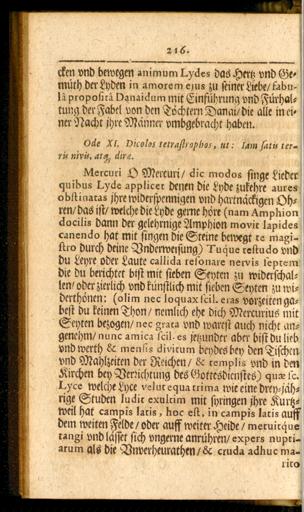 216.
cken vnd bewegen animum Lydes das Hertz vnd Ge-
müth der Lyden in amorem ejus zu seiner Liebe/ fabu-
lâ propositâ Danaidum mit Einführung vnd Fürhal-
tung der Fabel von den Töchtern Danai/ die alle in ei-
ner Nacht jhre Männer vmbgebracht haben.
Ode XI. Dicolos tetrastrophos, ut: Iam satis ter-
ris nivis, atq; diræ.
Mercuri O Mercuri/ dic modos singe Lieder
quibus Lyde applicet denen die Lyde zukehre aures
obstinatas jhre widerspennigen vnd hartnäckigen Oh-
ren/ das ist/ welche die Lyde gerne höre (nam Amphion
docilis dann der gelehrnige Amphion movit lapides
canendo hat mit singen die Steine bewegt te magi-
stro durch deine Vnderweisung) Tuque testudo vnd
du Leyre oder Laute callida resonare nervis septem
die du berichtet bist mit sieben Seyten zu widerschal-
len/ oder zierlich vnd künstlich mit sieben Seyten zu wi-
derthönen: (olim nec loquax scil. eras vorzeiten ga-
best du keinen Thon/ nemlich ehe dich Mercurius mit
Seyten bezogen/ nec grata vnd warest auch nicht an-
genehm/ nunc amica scil. es jetzunder aber bist du lieb
vnd werth & mensis divitum beydes bey den Tischen
vnd Mahlzeiten der Reichen/ & templis vnd in den
Kirchen bey Verrichtung des Gottesdienstes) quæ sc.
Lyce welche Lyce velut equa trima wie eine drey-jäh-
rige Studen ludit exultim mit springen jhre Kurtz-
weil hat campis latis, hoc est, in campis latis auff
dem weiten Felde/ oder auff weiter Heide/ metuitque
tangi vnd lässet sich vngerne anrühren/ expers nupti-
arum als die Vnverheurathen/ & cruda adhuc ma-
rito